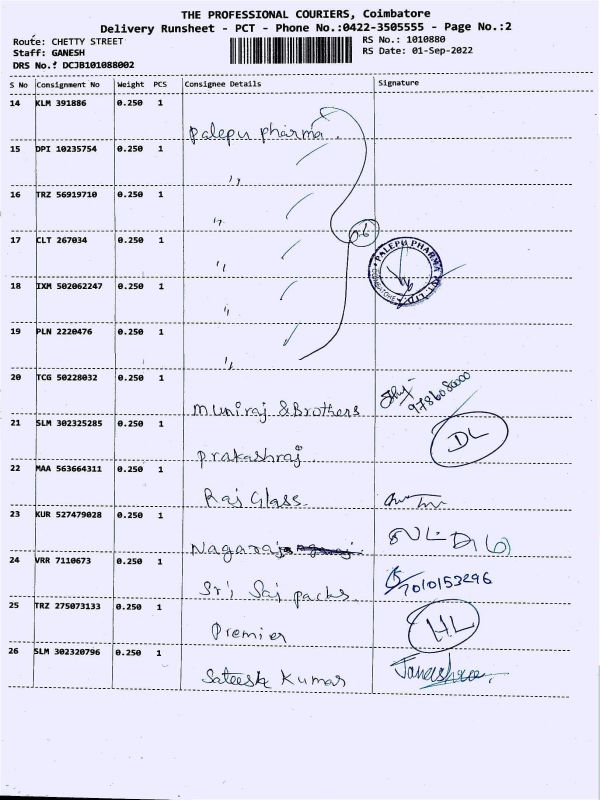 THE PROFESSIONAL COURIERS, Coimbatore
Delivery Runsheet - PCT - Phone No.:0422-3505555 - Page No.:2
Route: CHETTY STREET
RS No.: 1010880
Staff: GANESH
RS Date: 01-Sep-2022
DRS No.: DCJB101088002
S No Consignment No Weight PCS Consignee Details Signature
14 KLM 391886 0.250 1
Palepu pharma
15 DPI 10235754 0.250 1
〃
16 TRZ 56919710 0.250 1
〃
6
17 CLT 267034 0.250 1
〃
PALEPU PHARMA PVT. LTD.
COIMBATORE
18 IXM 502062247 0.250 1
〃
19 PLN 2220476 0.250 1
〃
20 TCG 50228032 0.250 1
Muniraj & Brothers
21 SLM 302325285 0.250 1
DL
Prakashraj
22 MAA 563664311 0.250 1
Raj Glass
23 KUR 527479028 0.250 1
Nagaraj
24 VRR 7110673 0.250 1
Sri Sai packs
7010153296
25 TRZ 275073133 0.250 1
Premier
HL
26 SLM 302320796 0.250 1
Sateesh Kumar